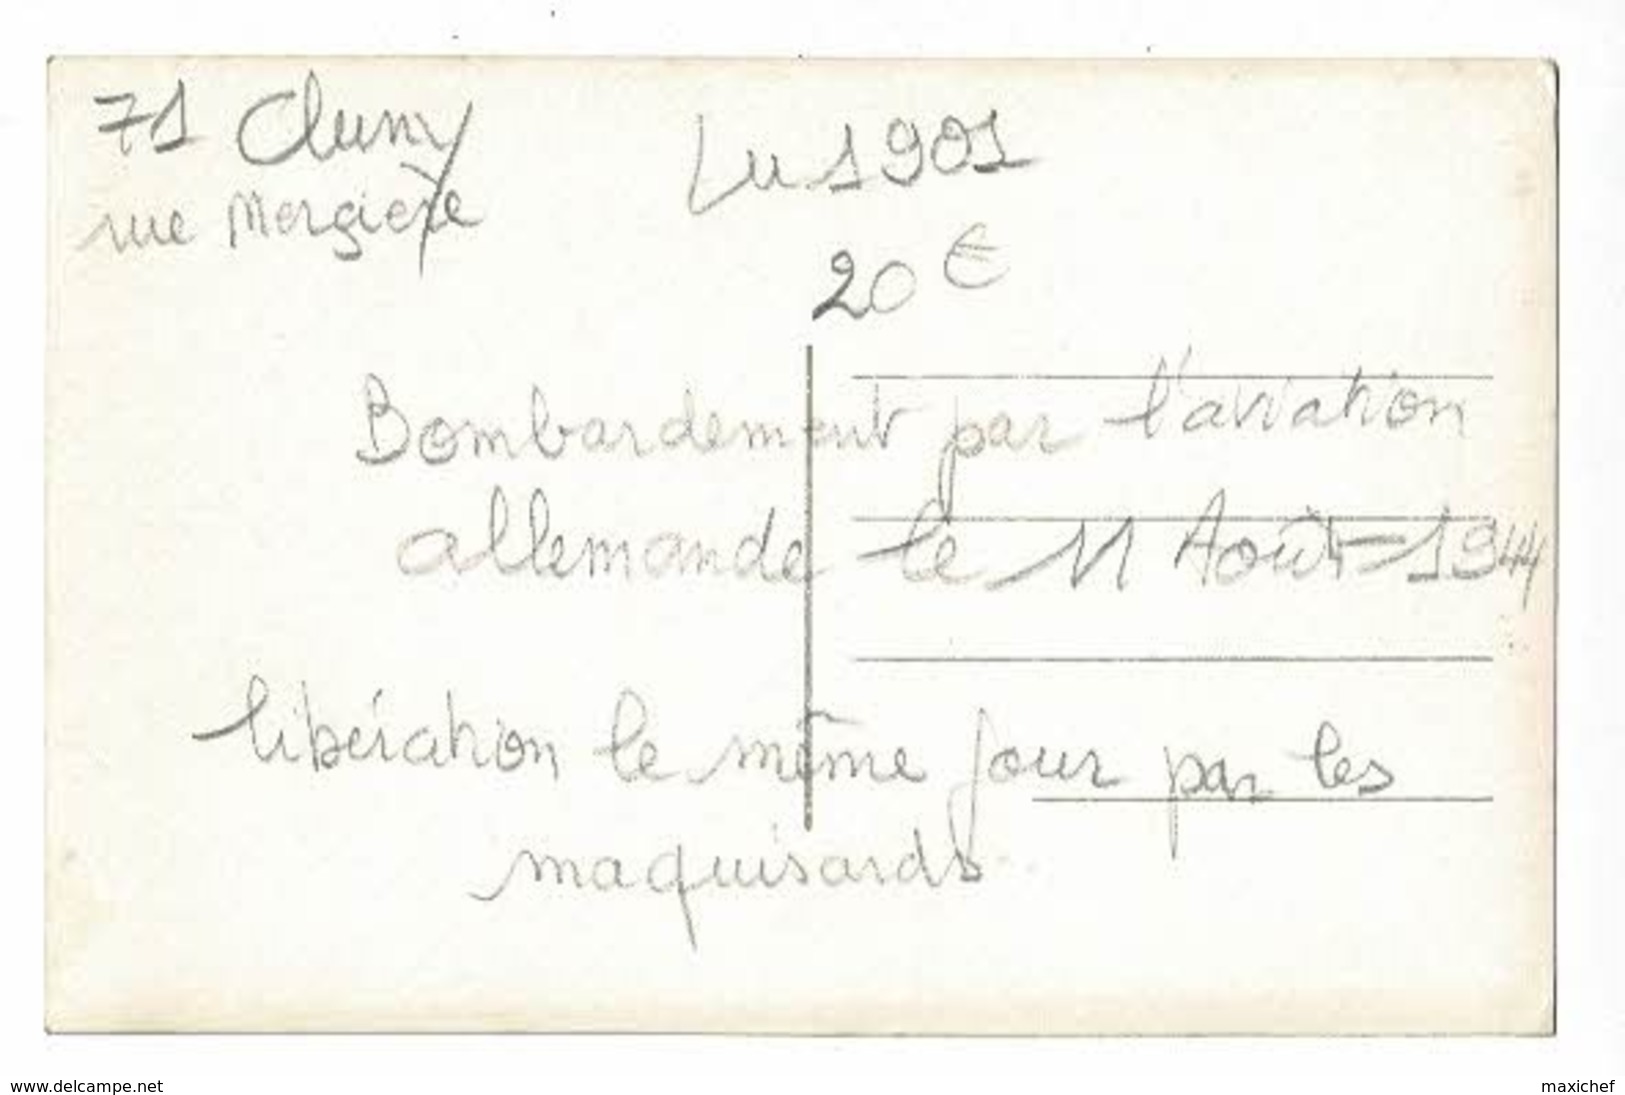 71 Cluny
rue Mergière
Lu 1901
20 €
Bombardement par l'aviation
allemande le 11 Août 1944
libération le même jour par les
maquisards
www.delcampe.net
maxichef